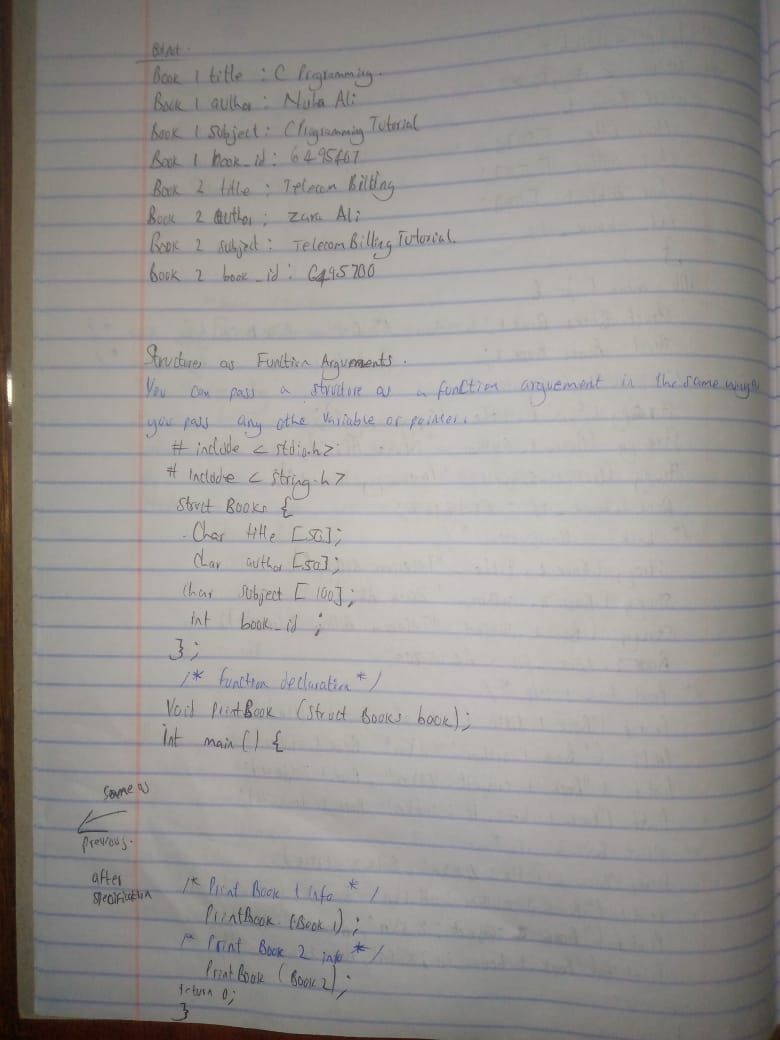 Output.
Book 1 title : C Programming.
Book 1 author : Nuha Ali
Book 1 subject : C Programming Tutorial
Book 1 book_id : 6495407
Book 2 title : Telecom Billing
Book 2 author : Zara Ali
Book 2 subject : Telecom Billing Tutorial.
Book 2 book_id : 6495700
Structures as Function Arguements.
You can pass a structure as a function arguement in the same way as
you pass any other variable or pointer.
# include < stdio.h>
# include < string.h >
struct Books {
Char title [50];
char author [50];
char subject [100];
int book_id ;
};
/* function declaration */
Void printBook (struct Books book);
int main() {
Same as
previous.
after
specification
/* Print Book 1 info */
PrintBook (Book 1);
/* Print Book 2 info */
PrintBook (Book 2);
return 0;
}